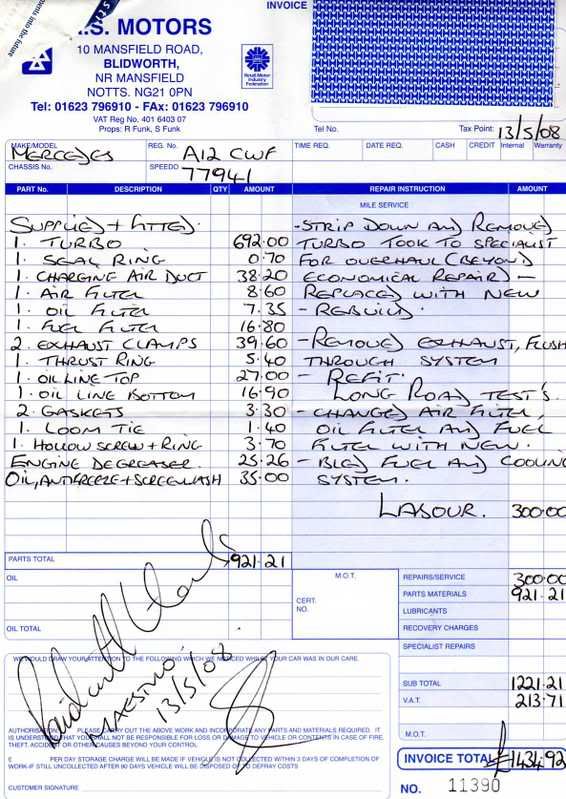 INVOICE
.S. MOTORS
10 MANSFIELD ROAD,
BLIDWORTH,
NR MANSFIELD
NOTTS. NG21 0PN
Tel: 01623 796910 - FAx: 01623 796910
VAT Reg No. 401 6403 07
Props: R Funk, S Funk
Retail Motor Industry Federation
Tel No. Tax Point: 13/5/08
MAKE/MODEL MERCEDES REG. No. A12 CWF TIME REQ. DATE REQ. CASH CREDIT Internal Warranty
CHASSIS No. SPEEDO 77941
PART No. DESCRIPTION QTY AMOUNT REPAIR INSTRUCTION AMOUNT
MILE SERVICE
SUPPLIED + FITTED. - STRIP DOWN AND REMOVED
1. TURBO 692.00 TURBO TOOK TO SPECIALIST
1. SEAL RING 0.70 FOR OVERHAUL (BEYOND
1. CHARGING AIR DUCT 38.20 ECONOMICAL REPAIR) -
1. AIR FILTER 8.60 REPLACED WITH NEW
1. OIL FILTER 7.35 - REBUILD.
1. FUEL FILTER 16.80
2. EXHAUST CLAMPS 39.60 - REMOVED EXHAUST, FLUSH
1. THRUST RING 5.40 THROUGH SYSTEM
1. OIL LINE TOP 27.00 - REFIT.
1. OIL LINE BOTTOM 16.90 LONG ROAD TEST'S.
2 GASKETS 3.30 - CHANGED AIR FILTER,
1. LOOM TIE 1.40 OIL FILTER AND FUEL
1. HOLLOW SCREW + RING 3.70 FILTER WITH NEW.
ENGINE DEGREASER. 25.26 - BLED FUEL AND COOLING
OIL, ANTIFREEZE + SCREENWASH 35.00 SYSTEM.
LABOUR. 300.00
PARTS TOTAL 921.21
OIL M.O.T. REPAIRS/SERVICE 300.00
CERT. NO. PARTS MATERIALS 921.21
LUBRICANTS
OIL TOTAL RECOVERY CHARGES
SPECIALIST REPAIRS
WE WOULD DRAW YOUR ATTENTION TO THE FOLLOWING WHICH WE NOTICED WHILE YOUR CAR WAS IN OUR CARE.
Paid with thanks
MAESTRO.
13/5/08
SUB TOTAL 1221.21
V.A.T. 213.71
M.O.T.
AUTHORISATION: PLEASE CARRY OUT THE ABOVE WORK AND INCORPORATE ANY PARTS AND MATERIALS REQUIRED. IT
IS UNDERSTOOD THAT YOU SHALL NOT BE RESPONSIBLE FOR LOSS OR DAMAGE TO VEHICLE OR CONTENTS IN CASE OF FIRE,
THEFT, ACCIDENT OR OTHER CAUSES BEYOND YOUR CONTROL.
INVOICE TOTAL £1434.92
£ PER DAY STORAGE CHARGE WILL BE MADE IF VEHICLE IS NOT COLLECTED WITHIN 3 DAYS OF COMPLETION OF
WORK-IF STILL UNCOLLECTED AFTER 90 DAYS VEHICLE WILL BE DISPOSED OF TO DEFRAY COSTS
CUSTOMER SIGNATURE
NO. 11390